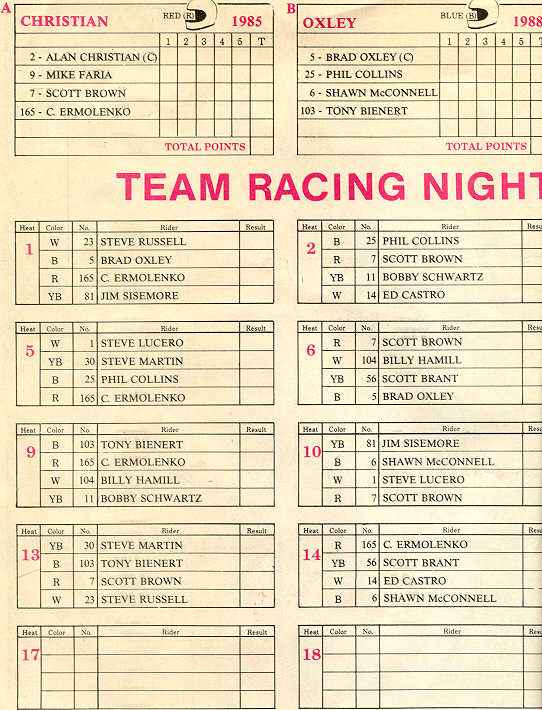 A CHRISTIAN RED (R) 1985
1 2 3 4 5 T
2 - ALAN CHRISTIAN (C)
9 - MIKE FARIA
7 - SCOTT BROWN
165 - C. ERMOLENKO
TOTAL POINTS
B OXLEY BLUE (B) 1988
1 2 3 4 5 T
5 - BRAD OXLEY (C)
25 - PHIL COLLINS
6 - SHAWN McCONNELL
103 - TONY BIENERT
TOTAL POINTS
TEAM RACING NIGHT
Heat Color No. Rider Result
1
W 23 STEVE RUSSELL
B 5 BRAD OXLEY
R 165 C. ERMOLENKO
YB 81 JIM SISEMORE
Heat Color No. Rider Resu
2
B 25 PHIL COLLINS
R 7 SCOTT BROWN
YB 11 BOBBY SCHWARTZ
W 14 ED CASTRO
Heat Color No. Rider Result
5
W 1 STEVE LUCERO
YB 30 STEVE MARTIN
B 25 PHIL COLLINS
R 165 C. ERMOLENKO
Heat Color No. Rider Resu
6
R 7 SCOTT BROWN
W 104 BILLY HAMILL
YB 56 SCOTT BRANT
B 5 BRAD OXLEY
Heat Color No. Rider Result
9
B 103 TONY BIENERT
R 165 C. ERMOLENKO
W 104 BILLY HAMILL
YB 11 BOBBY SCHWARTZ
Heat Color No. Rider Resu
10
YB 81 JIM SISEMORE
B 6 SHAWN McCONNELL
W 1 STEVE LUCERO
R 7 SCOTT BROWN
Heat Color No. Rider Result
13
YB 30 STEVE MARTIN
B 103 TONY BIENERT
R 7 SCOTT BROWN
W 23 STEVE RUSSELL
Heat Color No. Rider Resu
14
R 165 C. ERMOLENKO
YB 56 SCOTT BRANT
W 14 ED CASTRO
B 6 SHAWN McCONNELL
Heat Color No. Rider Result
17
Heat Color No. Rider Resu
18